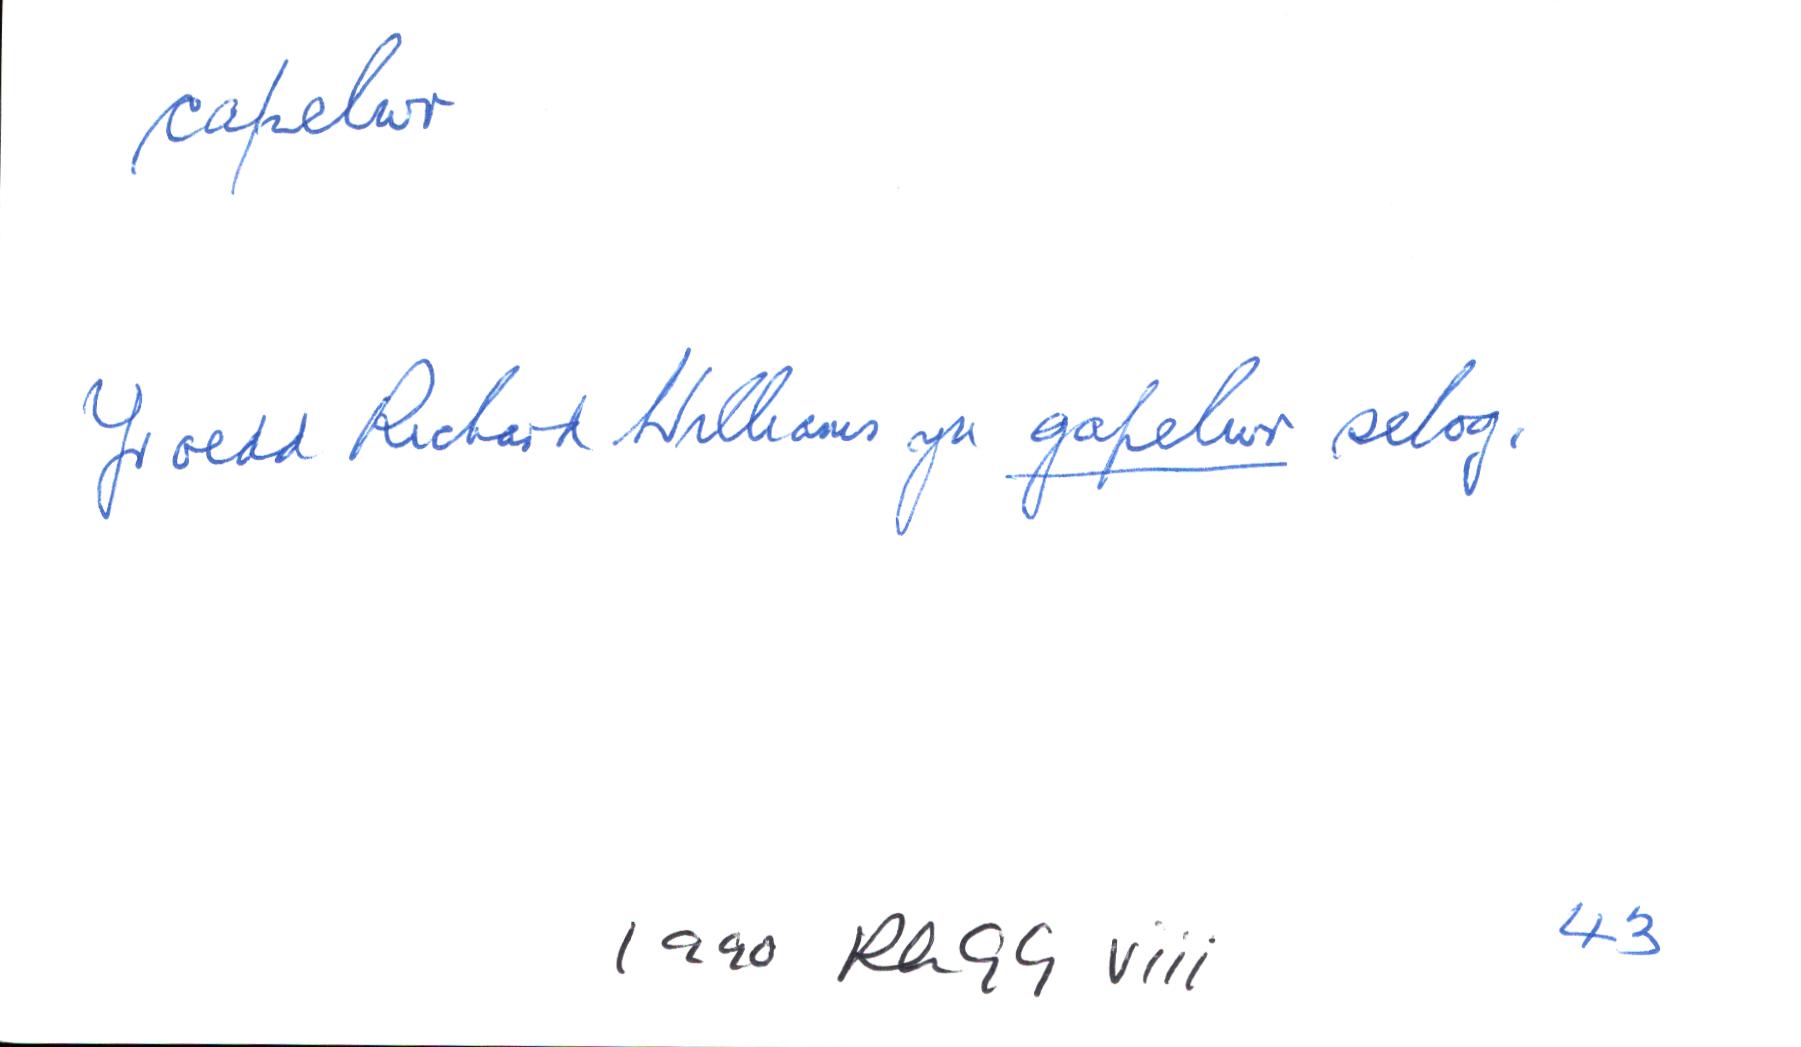 capelwr
Yr oedd Richard Williams yn gapelwr selog.
1990 RhGG viii 43